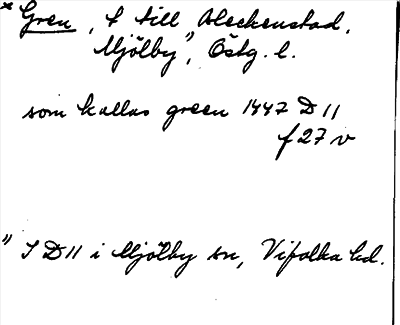 * Gren, f till Oleckenstad,
Mjölby", Östg. l.
som kallas green 1447 D 11
f 27 v
" I D 11 i Mjölby sn, Vifolka hd.